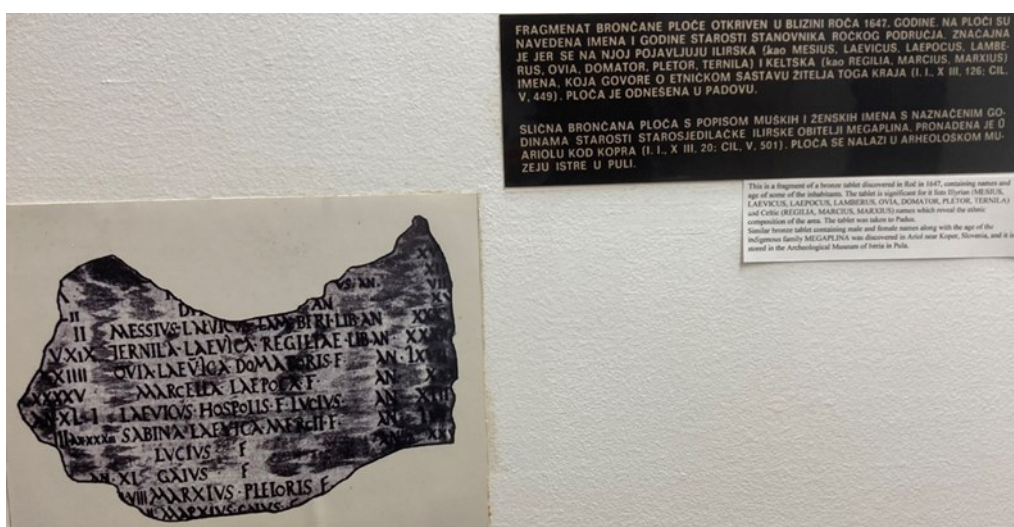 FRAGMENAT BRONČANE PLOČE OTKRIVEN U BLIZINI ROČA 1647. GODINE. NA PLOČI SU
NAVEDENA IMENA I GODINE STAROSTI STANOVNIKA ROČKOG PODRUČJA. ZNAČAJNA
JE JER SE NA NJOJ POJAVLJUJU ILIRSKA (kao MESIUS, LAEVICUS, LAEPOCUS, LAMBE-
RUS, OVIA, DOMATOR, PLETOR, TERNILA) I KELTSKA (kao REGILIA, MARCIUS, MARXIUS)
IMENA, KOJA GOVORE O ETNIČKOM SASTAVU ŽITELJA TOGA KRAJA (I. I., X III, 126; CIL,
V, 449). PLOČA JE ODNEŠENA U PADOVU.
SLIČNA BRONČANA PLOČA S POPISOM MUŠKIH I ŽENSKIH IMENA S NAZNAČENIM GO-
DINAMA STAROSTI STAROSJEDILAČKE ILIRSKE OBITELJI MEGAPLINA, PRONAĐENA JE U
ARIOLU KOD KOPRA (I. I., X III, 20; CIL, V, 501). PLOČA SE NALAZI U ARHEOLOŠKOM MU-
ZEJU ISTRE U PULI.
This is a fragment of a bronze tablet discovered in Roč in 1647, containing names and
age of some of the inhabitants. The tablet is significant for it lists Illyrian (MESIUS,
LAEVICUS, LAEPOCUS, LAMBERUS, OVIA, DOMATOR, PLETOR, TERNILA)
and Celtic (REGILIA, MARCIUS, MARXIUS) names which reveal the ethnic
composition of the area. The tablet was taken to Padua.
Similar bronze tablet containing male and female names along with the age of the
indigenous family MEGAPLINA was discovered in Ariol near Koper, Slovenia, and it is
stored in the Archeological Museum of Istria in Pula.
VS · AN ·
AN
II MESSIVS · LAEVICVS · LAMBERI · LIB · AN XXX
VXIX IERNILA · LAEVICA · REGILIAE · LIB · AN · XX
XIIII OVIA · LAEVICA · DOMATORIS · F · AN · LXVII
XXXXV MARCELLA LAEPOCA F · AN · X
AN · XL · I LAEVICVS · HOSPOLIS · F · LVCIVS · AN · XIII
SABINA · LAEVICA · MERCII · F · AN · I
LVCIVS F
AN · XL GAIVS F
VIII MARXIVS · PLETORIS F
MARXIVS · CAIVS · F